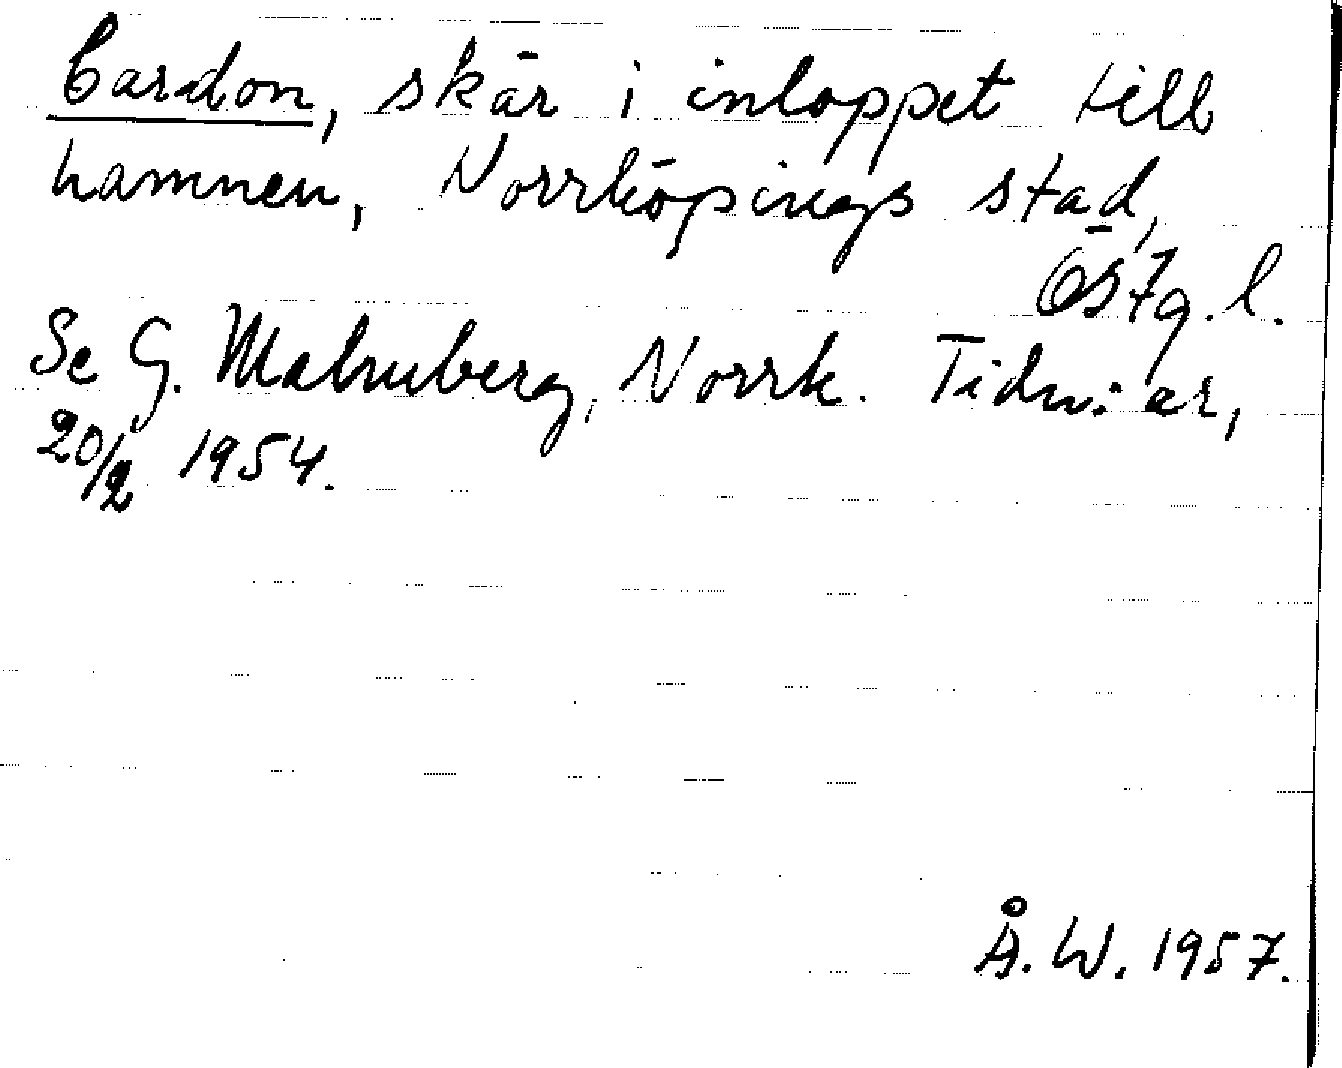 Cardon, skär i inloppet till
hamnen, Norrköpings stad,
Östg. l.
Se G. Malmberg, Norrk. Tidn:ar,
20/2 1954.
Å. W. 1957.